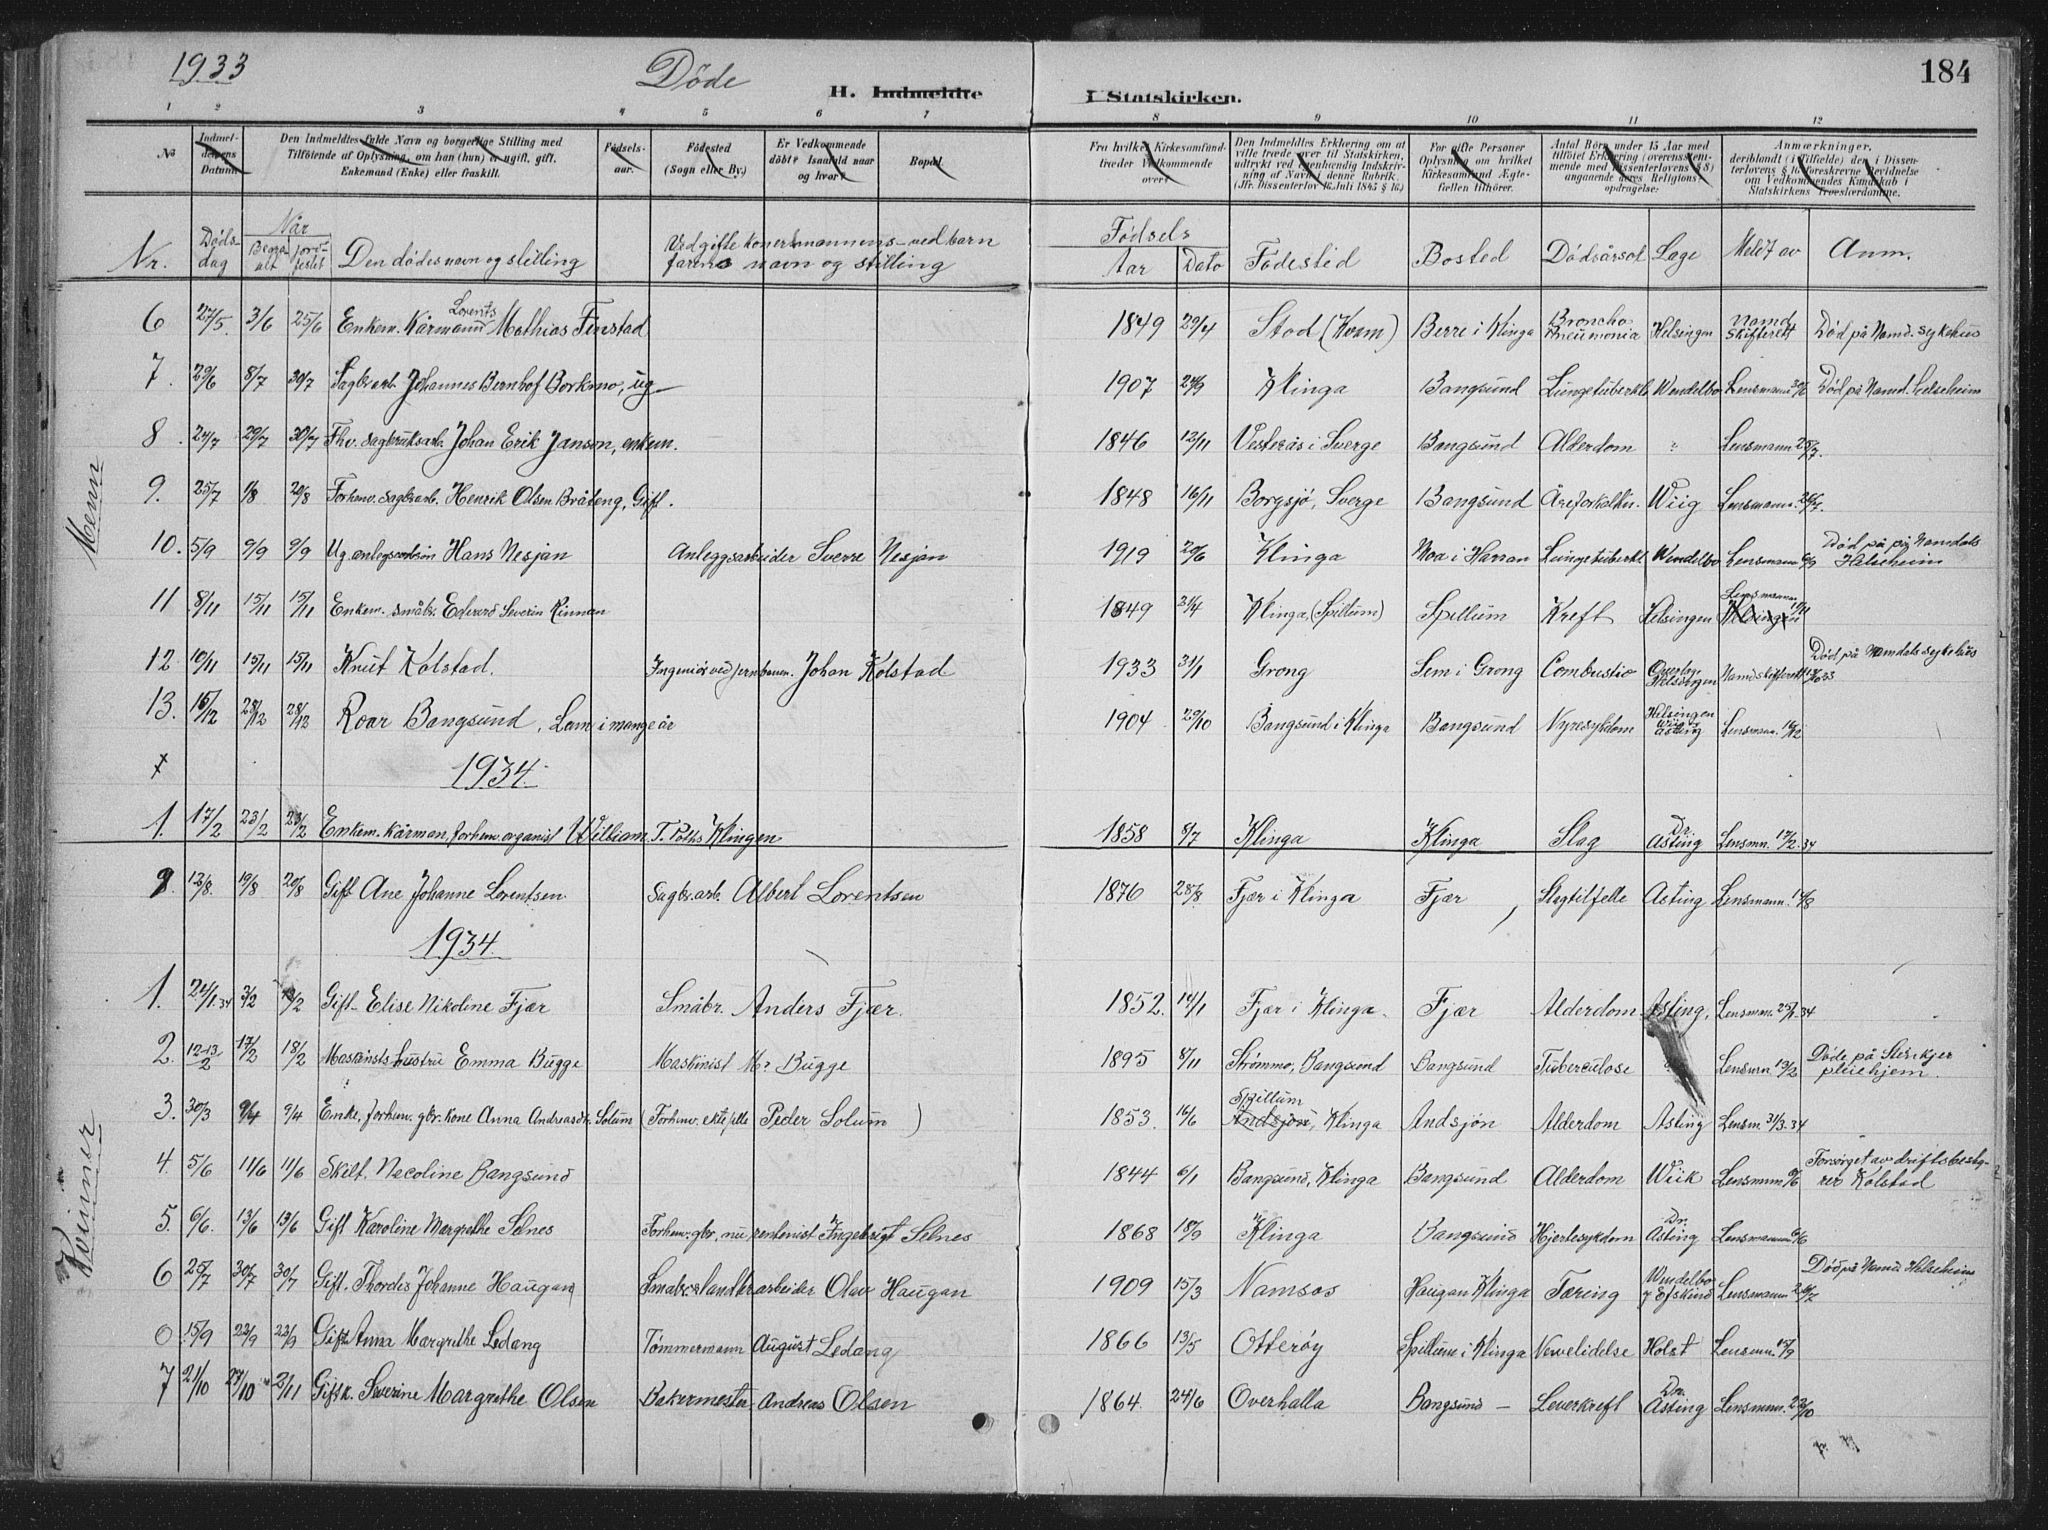 1933
Döde
H. Indmeldte
I Statskirken.
184
1 2 3 4 5 6 7 8 9 10 11 12
No
Indmeldelsens Datum.
Den Indmeldtes fulde Navn og borgerlige Stilling med
Tilföiende af Oplysning, om han (hun) er ugift, gift,
Enkemand (Enke) eller fraskilt.
Födsels-
aar.
Födested
(Sogn eller By.)
Er Vedkommende
döbt? Isaafald naar
og hvor?
Bopæl.
Fra hvilket Kirkesamfund
træder Vedkommende
over?
Den Indmeldtes Erklæring om at
ville træde over til Statskirken,
udtrykt ved egenhændig Indskriv-
ning af Navn i denne Rubrik.
(Jfr. Dissenterlov 16 Juli 1845 § 16.)
For gifte Personer
Oplysning om hvilket
Kirkesamfund Ægte-
fællen tilhörer.
Antal Börn under 15 Aar med
tilföiet Erklæring (overensstem-
mende med Dissenterlovens § 8)
angaaende deres Religions-
opdragelse.
Anmærkninger,
deriblandt (i Tilfælde) den i Dissen-
terlovens § 16 foreskrevne Bevidnelse
om Vedkommendes Kundskab i
Statskirkens Troeslærdomme.
Nr. Døds-dag Når Begra-vet Jord-festet Den dödes navn og stilling Ved gifte koner mannens - ved barn farens navn og stilling Födsels Aar Dato Födested Bosted Dödsårsak Læge Meldt av Anm.
Menn
6 27/5. 3/6 25/6 Enkem. Kårmann Lorents Mathias Finstad 1849 29/4 Stod (Kvam) Berre i Klinga Broncho Pneumonia Helsingen Namd Skifterett Död på Namd. Sykehus
7. 29/6 8/7 30/7 Sagbr.arb. Johannes Bernhof Borkmo, ug 1907 Klinga Bangsund Lungetuberkl. Wendelbo Lensmann 30/6 Död på Namd. Helseheim
8 24/7 29/7 30/7 Fhv. sagbruksarb. Johan Erik Janson, enkem. 1846 12/11 Vesterås i Sverge Bangsund Alderdom " Lensmann 28/7.
9. 25/7 1/8 20/8 Forhenv. sagbr.arb. Henrik Olsen Bråteng, Gift. 1848 16/11 Borgsjö, Sverge Bangsund Åreforkalkn. Wiig Lensmann. 26/7.
10. 5/9 9/9 9/9 Ug. anlegsarbeider Hans Nesjan Anleggsarbeider Sverre Nesjan 1919 20/6 Klinga Moa i Harran Lungetuberkl. Wendelbo Lensmann 6/9 Död på på Namdals Helseheim
11 8/11 15/11 15/11 Enkem. småbr. Edvard Severin Rinnan 1849 21/4 Klinga, (Spillum) Spillum Kreft Helsingen Lensmann Helsingen 11/11
12 10/11 15/11 15/11 Knut Kolstad. Ingeniör ved jernbanen. Johan Kolstad 1933 31/1 Grong Sem i Grong Combustio Overlæge Helsingen Namd skifterett Död på Namdals Sykehus
13. 15/12 28/12 28/12 Roar Bangsund, Lam i mange år 1904 29/10 Bangsund i Klinga Bangsund Nyresykdom Helsingen Wiig Asting Lensmann. 16/12
1934.
1. 17/2 23/2 23/2 Enkem. kårman, forhenv. organist William T. Poths Klingen 1858 8/7 Klinga Klinga Slag Dr. Asting Lensmn. 17/2.34
Kvinner
9. 13/8. 19/8 20/8 Gift Ane Johanne Lorentsen Sagbr.arb. Albert Lorentsen 1876 28/8 Fjær i Klinga Fjær Slagtilfelle Asting Lensmann. 14/8
1934.
1. 24/1.34 3/2 18/2 Gift Elise Nikoline Fjær Småbr. Anders Fjær. 1852. 14/1 Fjær i Klinga. Fjær Alderdom Asting, Lensman. 25/1.34
2. 12-13/2 17/2 18/2 Maskinists hustru Emma Bugge Maskinist M. Bugge 1895 8/11 Strömmo, Bangsund Bangsund Tuberculose " Lensmn. 13/2 Döde på Steinkjer pleiehjem.
3. 30/3 9/4 9/4 Enke, forhenv. gbr.kone Anna Andreasdtr. Solum (Forhenv. ektefelle Peder Solum) 1853. 16/6 Spillum Andsjön, Klinga Andsjön Alderdom Asting Lensm. 31/3.34
4. 5/6 11/6 11/6 Skilt. Necoline Bangsund 1844 6/1 Bangsund, Klinga Bangsund Alderdom Wiik Lensmnn. 6/6 Forsörget av driftsbesty-rer Kolstad
5. 6/6. 13/6 13/6 Gift Karoline Margrethe Selnes Forhenv. gbr, nu rentenist Ingebrigt Selnes 1868 18/9 Klinga Bangsund Hjertesykdom Dr. Asting Lensmann 6/6
6 25/7 30/7 30/7 Gift. Thordis Johanne Haugan Småbr. landbr arbeider Olav Haugan 1909 15/3 Namsos Haugan Klinga Tæring Wendelbo Lensmann 26/7 Död på Namd. Helseheim
0 15/9 23/9 23/9 Gift Anna Margrethe Ledang Tömmermann August Ledang 1866 13/5 Otteröy Spillum i Klinga Nervelidelse Holst Lensmn. 15/9
7 21/10 27/10 2/11 Gift k. Severine Margrethe Olsen Bakermester Andreas Olsen 1864. 24/6 Overhalla Bangsund — Leverkreft Dr. Asting Lensmnn. 22/10